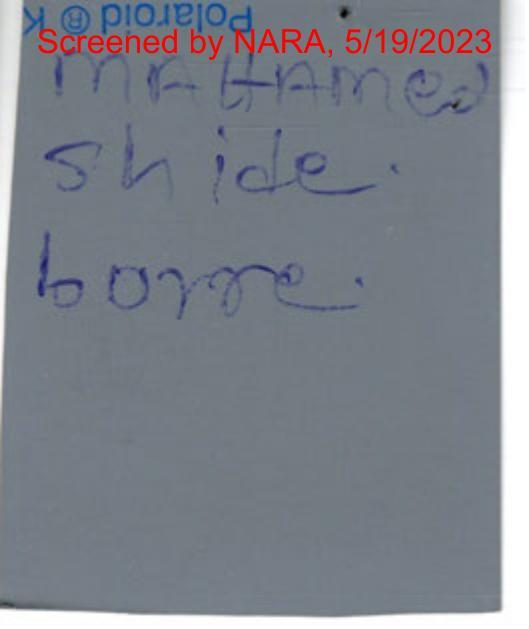 Polaroid ® K
Screened by NARA, 5/19/2023
MAHAMed
Shide.
borre.